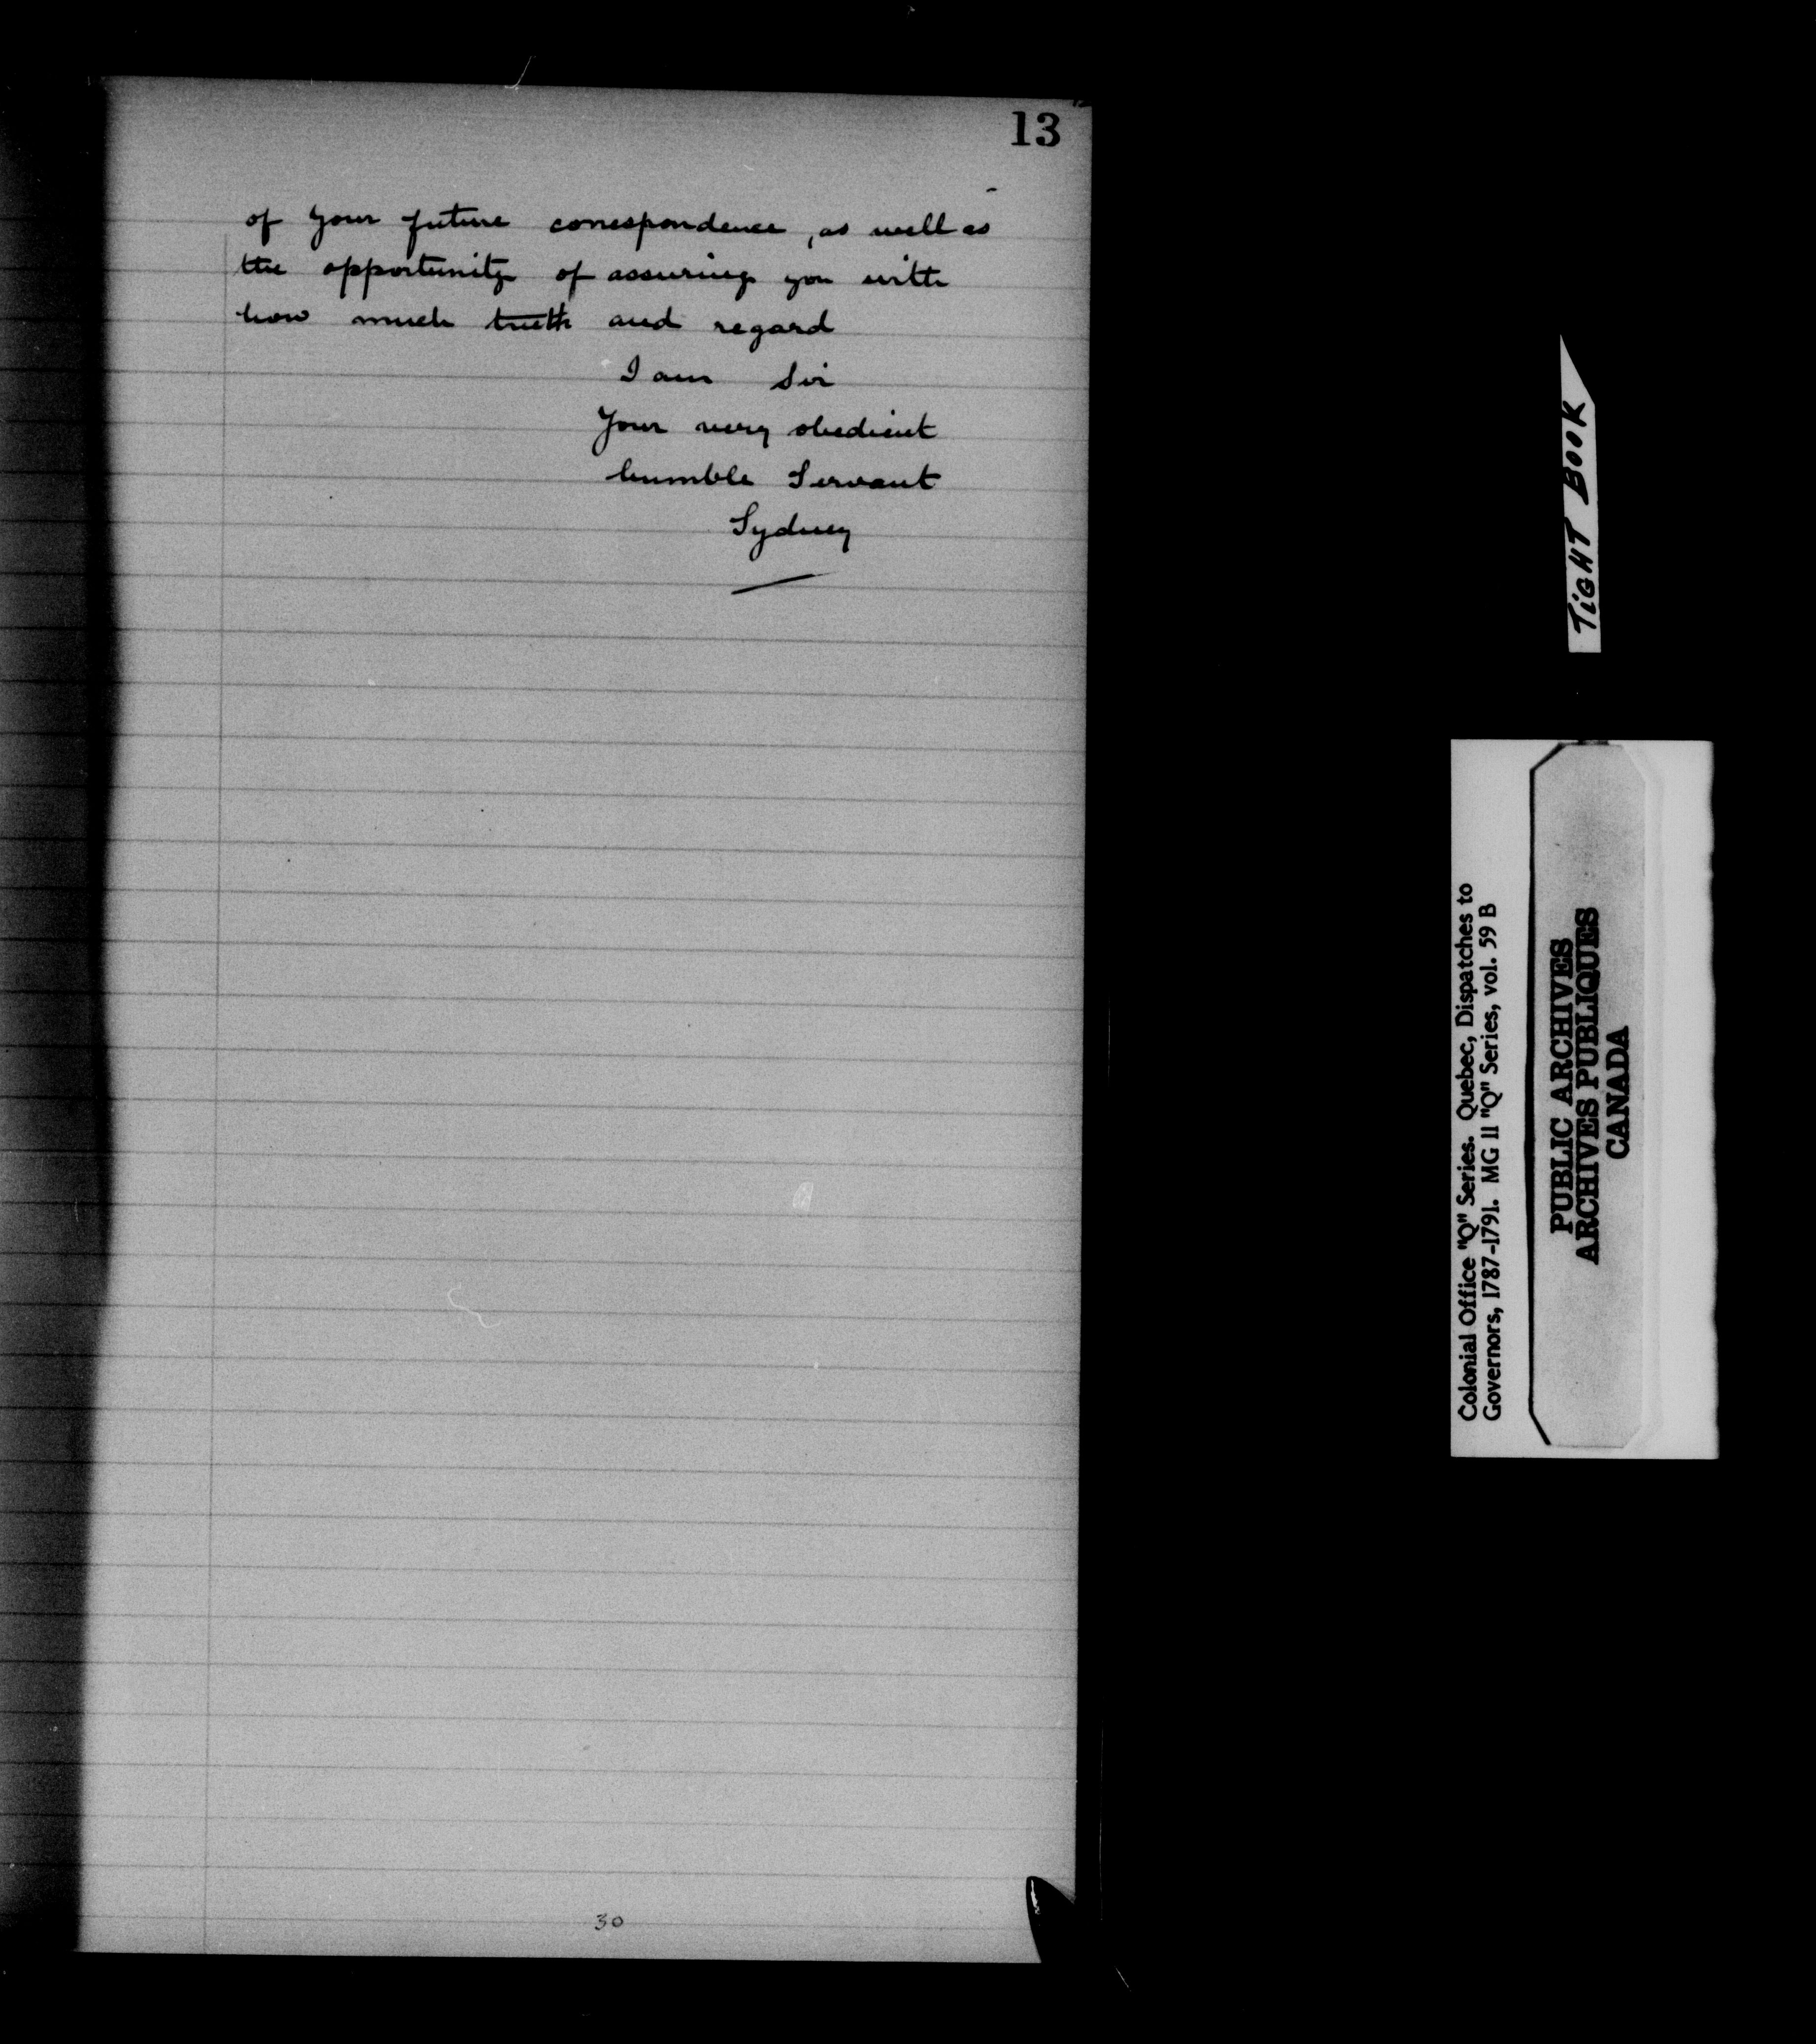 13
of your future correspondence, as well as
the opportunity of assuring you with
how much truth and regard
I am Sir
Your very obedient
humble Servant
Sydney
30
TIGHT BOOK
Colonial Office "Q" Series. Quebec, Dispatches to
Governors, 1787-1791. MG 11 "Q" Series, vol. 59 B
PUBLIC ARCHIVES
ARCHIVES PUBLIQUES
CANADA